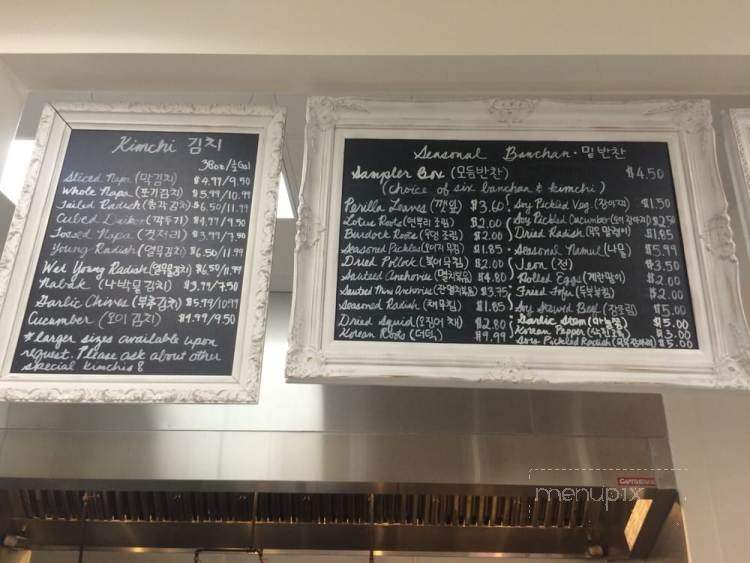 Kimchi 김치
38oz/½Gal
Sliced Napa (막김치) $4.99/9.50
Whole Napa (포기김치) $5.99/10.99
Tailed Radish (총각김치) $6.50/11.99
Cubed Daikon (깍두기) $4.99/9.50
Tossed Napa (겉저리) $3.99/7.50
Young Radish (열무김치) $6.50/11.99
Wet Young Radish (열무물김치) $6.50/11.99
Nabak (나박물김치) $3.99/7.50
Garlic Chives (부추김치) $5.99/10.99
Cucumber (오이김치) $4.99/9.50
* larger sizes available upon
request. Please ask about other
special kimchis!
Seasonal Banchan · 밑반찬
Sampler Box (모듬반찬) $4.50
(choice of six banchan & kimchi)
Perilla Leaves (깻잎) $3.60
Lotus Roots (연뿌리 조림) $2.00
Burdock Roots (우엉 조림) $2.00
Seasoned Pickles (오이지 무침) $1.85
Dried Pollock (북어무침) $2.00
Sauteed Anchovies (멸치볶음) $4.80
Sauteed Mini Anchovies (잔멸치볶음) $3.75
Seasoned Radish (채무침) $1.85
Dried Squid (오징어 채) $2.80
Korean Roots (더덕) $9.99
Soy Pickled Veg. (장아찌) $1.50
Soy Pickled Cucumber (오이 장아찌) $2.50
Dried Radish (무우 말랭이) $1.85
Seasonal Namul (나물) $5.99
Jeon (전) $3.50
Rolled Eggs (계란말이) $2.00
Fried Tofu (두부부침) $2.00
Soy Stewed Beef (장조림) $5.00
Garlic Stem (마늘쫑) $5.00
Korean Pepper $3.00
Pickled Radish $5.00
menupix
CAPTIVEAIRE